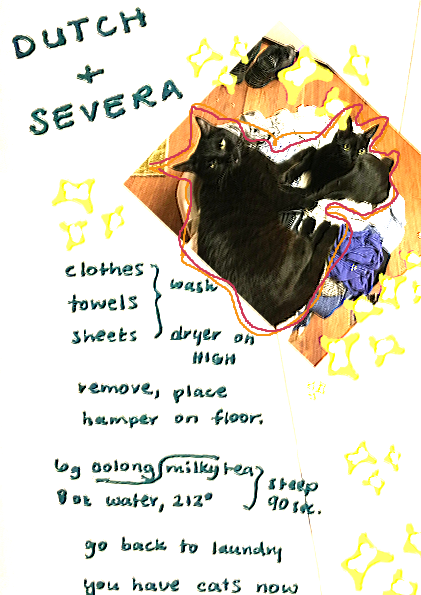 DUTCH
+
SEVERA
clothes
towels
wash
sheets
dryer on
HIGH
remove, place
hamper on floor.
6g oolong milky tea
8 oz water, 212°
steep
90 sec.
go back to laundry
you have cats now